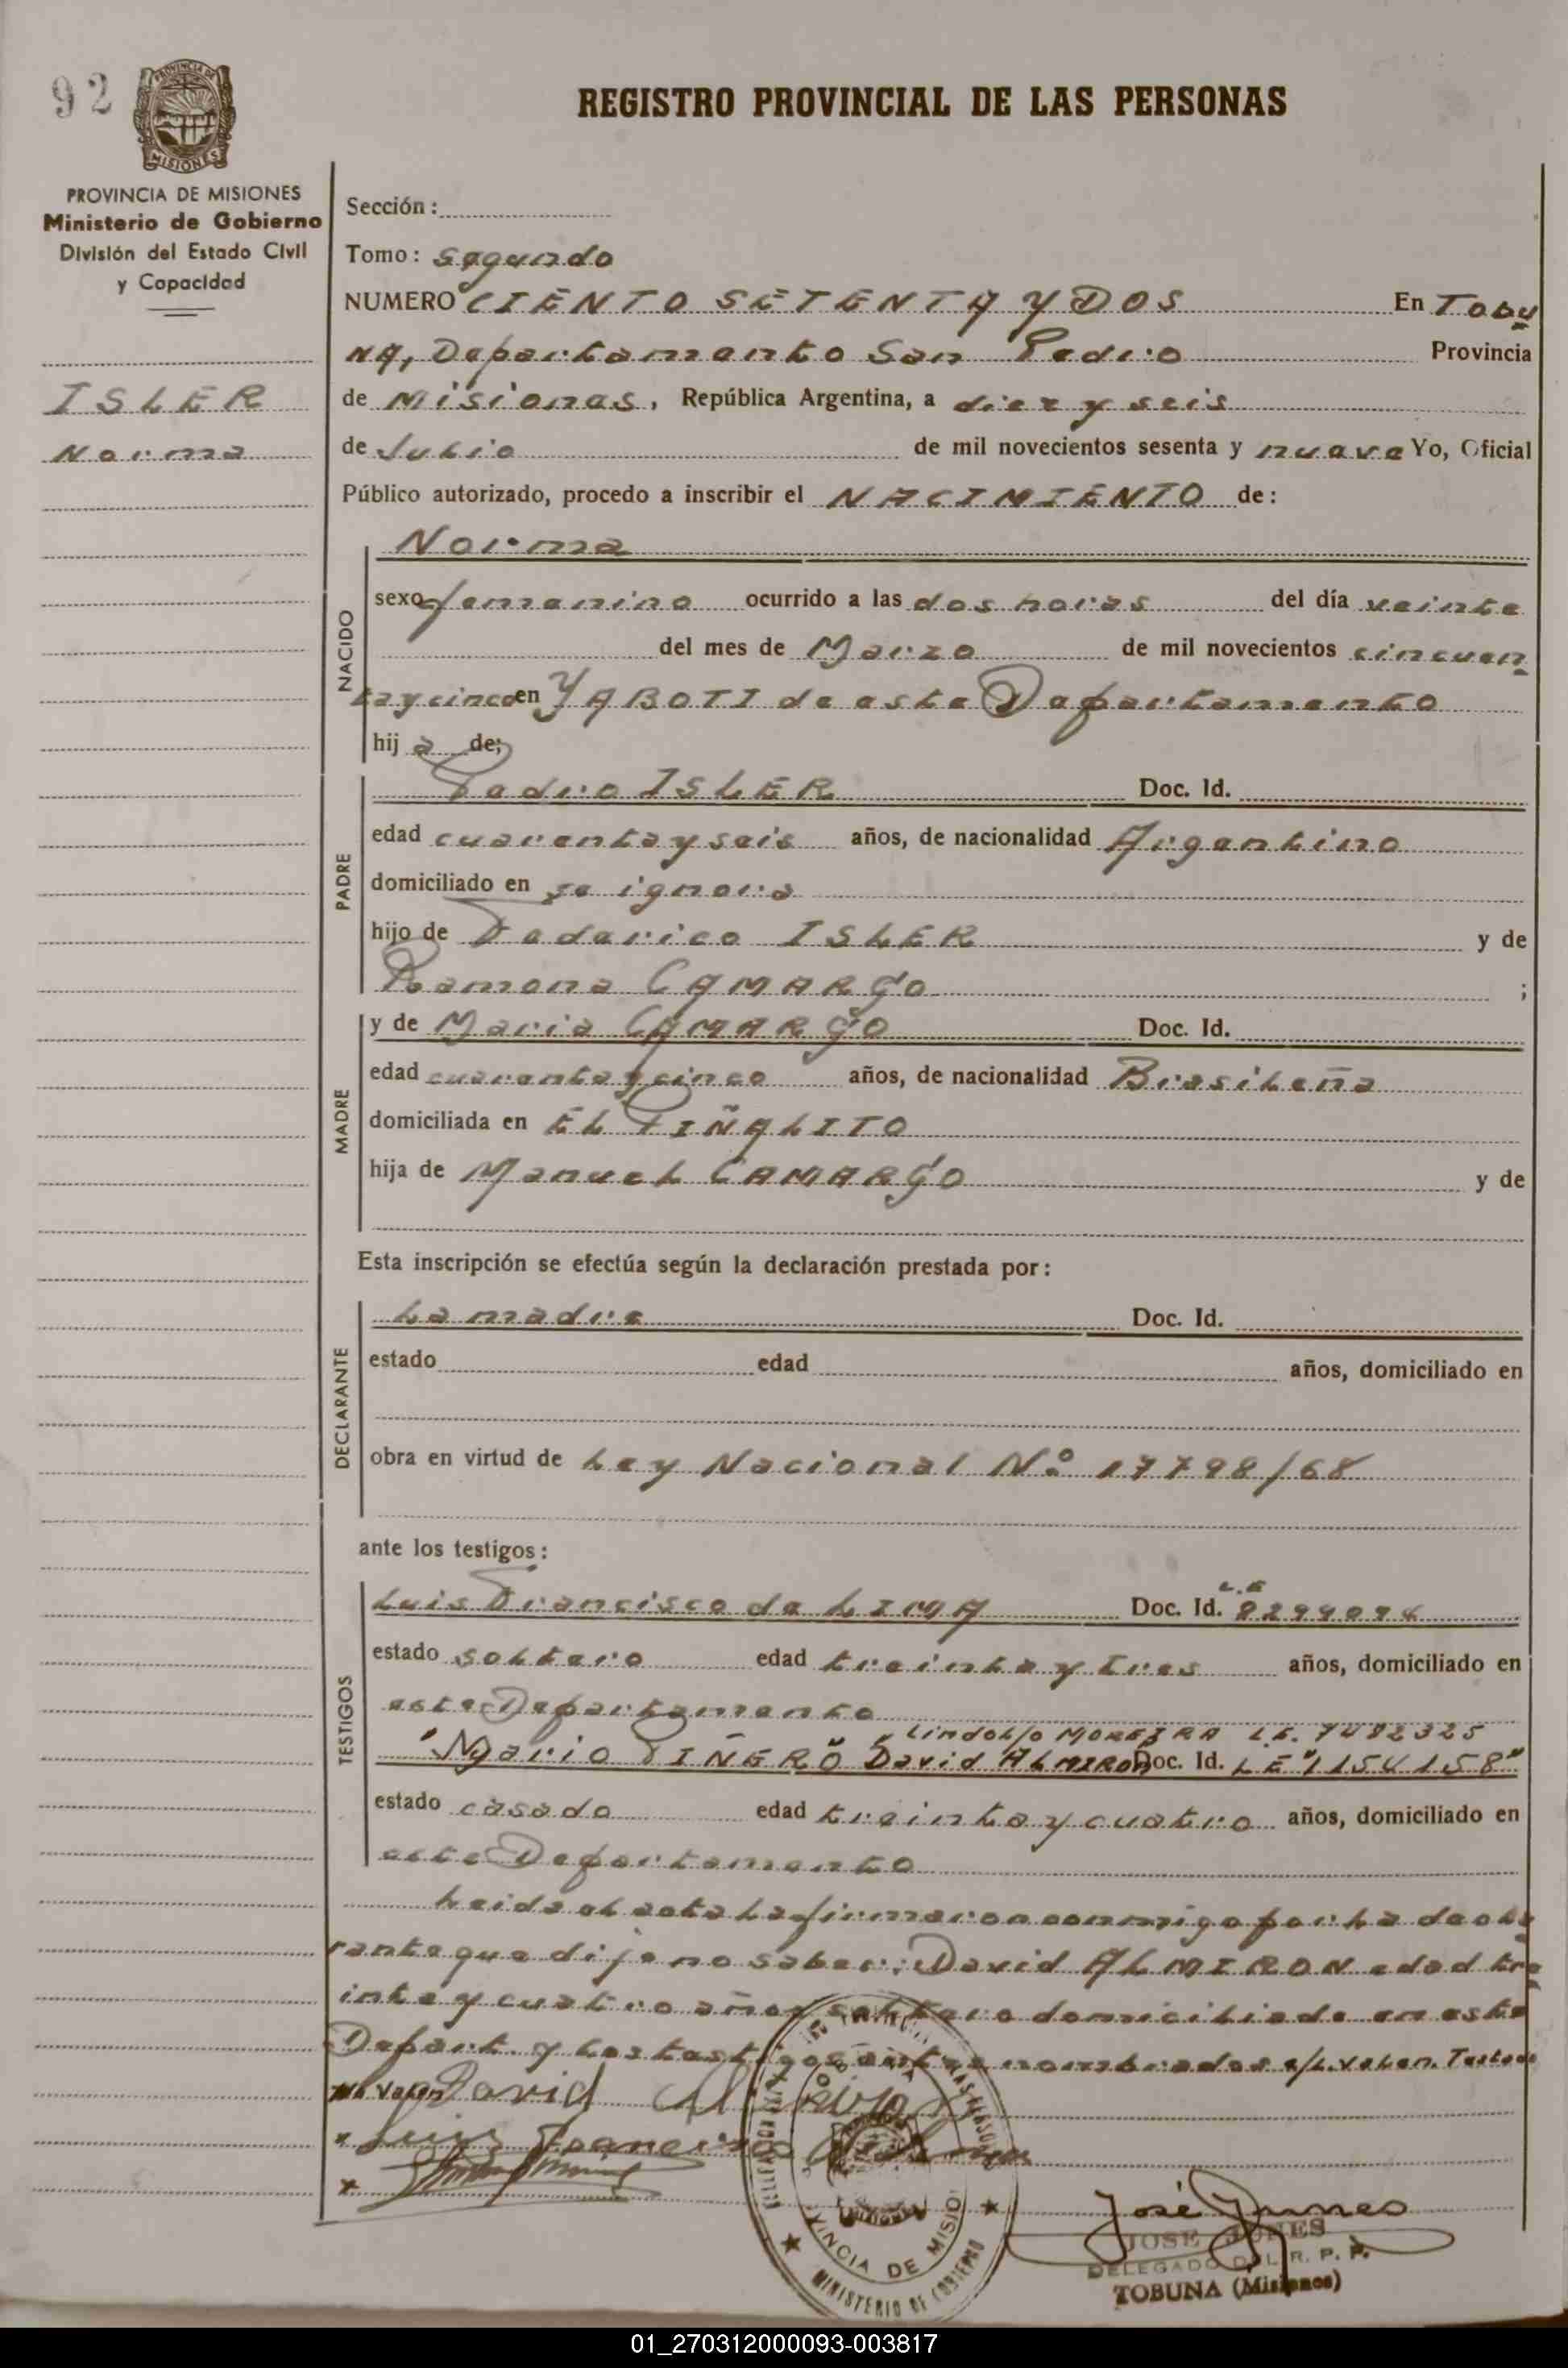 92
REGISTRO PROVINCIAL DE LAS PERSONAS
PROVINCIA DE MISIONES
MISIONES
PROVINCIA DE MISIONES
Ministerio de Gobierno
División del Estado Civil
y Capacidad
ISLER
Norma
Sección:
Tomo: Segundo
NUMERO CIENTO SETENTA Y DOS En Tobu
NA, Departamento San Pedro Provincia
de Misiones, República Argentina, a diez y seis
de Julio de mil novecientos sesenta y nueve Yo, Oficial
Público autorizado, procedo a inscribir el NACIMIENTO de:
NACIDO
Norma
sexo femenino ocurrido a las dos horas del día veinte
del mes de Marzo de mil novecientos cincuen
tay cinco en YABOTI de este Departamento
hij a de;
PADRE
Pedro ISLER Doc. Id.
edad cuarenta y seis años, de nacionalidad Argentino
domiciliado en se ignora
hijo de Federico ISLER y de
Ramona CAMARGO ;
MADRE
y de Maria CAMARGO Doc. Id.
edad cuarenta y cinco años, de nacionalidad Brasileña
domiciliada en EL PIÑALITO
hija de Manuel CAMARGO y de
Esta inscripción se efectúa según la declaración prestada por:
DECLARANTE
La madre Doc. Id.
estado edad años, domiciliado en
obra en virtud de Ley Nacional Nº 17798/68
ante los testigos:
TESTIGOS
L.E
Luis Francisco da LIMA Doc. Id. 8299094
estado soltero edad treinta y tres años, domiciliado en
este Departamento
Lindolfo MOREIRA L.E. 7482325
"Mario PIÑERO" David ALMIRON Doc. Id. LE "1154158"
estado casado edad treinta y cuatro años, domiciliado en
este Departamento
Leida el acta la firmaron conmigo por la decla
rante que dijo no saber: David ALMIRON edad tre
inta y cuatro años soltero domiciliado en este
Depart. y los testigos antes nombrados e/L. Valen. Testado
No Valen David
Luis Francisco
José Junes
JOSE JUNES
DELEGADO DEL R. P. P.
TOBUNA (Misiones)
PROVINCIA DE MISIONES
MINISTERIO DE GOBIERNO
01_270312000093-003817